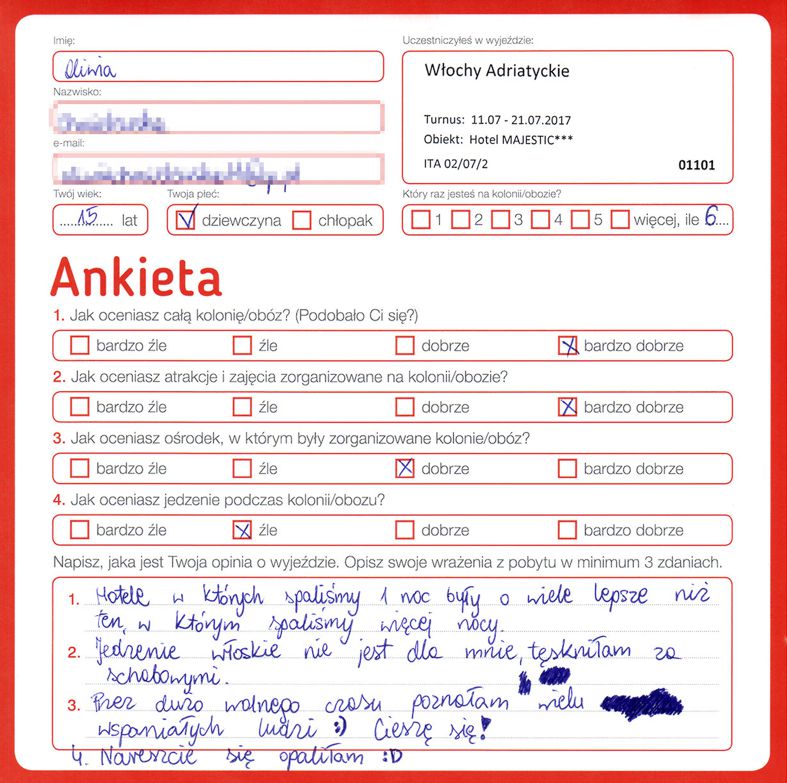 Imię:
Oliwia
Uczestniczyłeś w wyjeździe:
Włochy Adriatyckie
Turnus: 11.07 - 21.07.2017
Obiekt: Hotel MAJESTIC***
ITA 02/07/2 01101
Nazwisko:
e-mail:
Twój wiek:
15 lat
Twoja płeć:
dziewczyna chłopak
Który raz jesteś na kolonii/obozie?
1 2 3 4 5 więcej, ile 6
Ankieta
1. Jak oceniasz całą kolonię/obóz? (Podobało Ci się?)
bardzo źle źle dobrze bardzo dobrze
2. Jak oceniasz atrakcje i zajęcia zorganizowane na kolonii/obozie?
bardzo źle źle dobrze bardzo dobrze
3. Jak oceniasz ośrodek, w którym były zorganizowane kolonie/obóz?
bardzo źle źle dobrze bardzo dobrze
4. Jak oceniasz jedzenie podczas kolonii/obozu?
bardzo źle źle dobrze bardzo dobrze
Napisz, jaka jest Twoja opinia o wyjeździe. Opisz swoje wrażenia z pobytu w minimum 3 zdaniach.
1. Hotele w których spaliśmy 1 noc były o wiele lepsze niż
ten, w którym spaliśmy więcej nocy.
2. Jedzenie włoskie nie jest dla mnie, tęskniłam za
schabowymi.
3. Przez dużo wolnego czasu poznałam wielu
wspaniałych ludzi :) Cieszę się!
4. Nareszcie się opaliłam :D